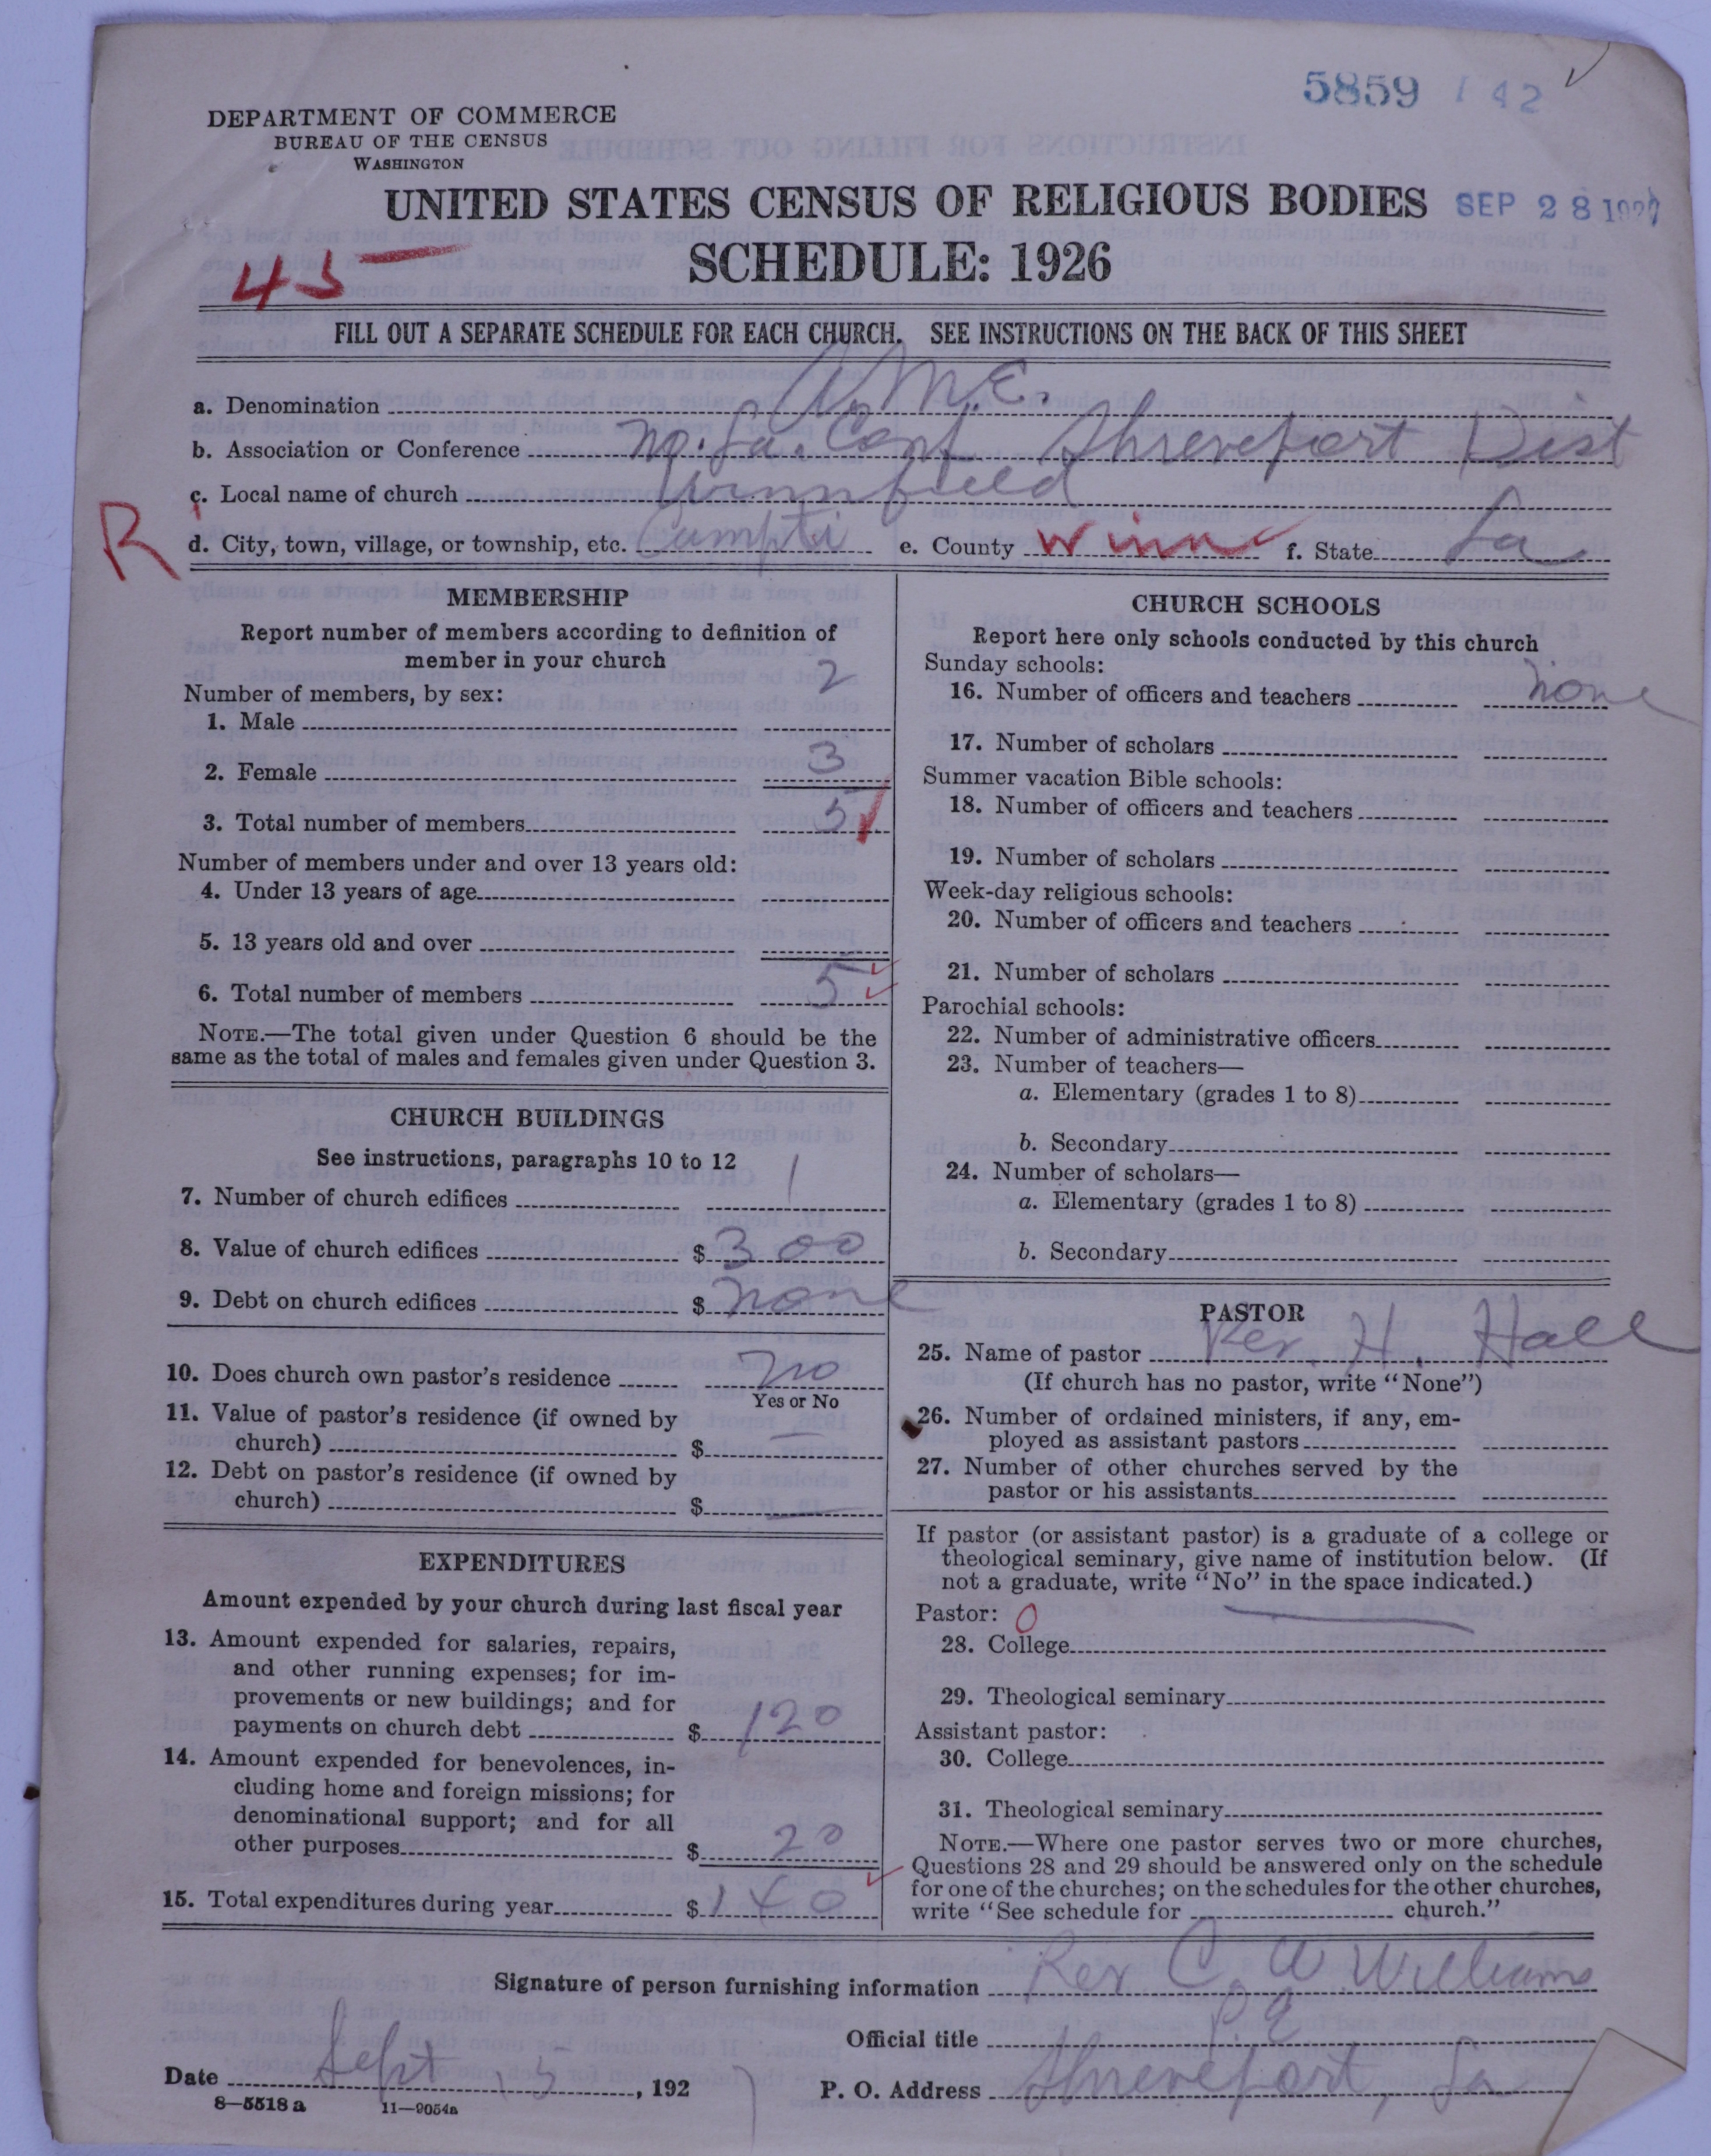 5859 142
DEPARTMENT OF COMMERCE
BUREAU OF THE CENSUS
WASHINGTON
UNITED STATES CENSUS OF RELIGIOUS BODIES SEP 28 1927
SCHEDULE: 1926
45
FILL OUT A SEPARATE SCHEDULE FOR EACH CHURCH. SEE INSTRUCTIONS ON THE BACK OF THIS SHEET
a. Denomination A.M.E.
b. Association or Conference No. La. Conf Shreveport Dist
c. Local name of church Winnfield
R
d. City, town, village, or township, etc. Campti e. County Winn f. State La
MEMBERSHIP
Report number of members according to definition of
member in your church
Number of members, by sex:
1. Male 2
2. Female 3
3. Total number of members 5
Number of members under and over 13 years old:
4. Under 13 years of age
5. 13 years old and over
6. Total number of members 5
NOTE.—The total given under Question 6 should be the
same as the total of males and females given under Question 3.
CHURCH BUILDINGS
See instructions, paragraphs 10 to 12
7. Number of church edifices 1
8. Value of church edifices $300
9. Debt on church edifices $none
10. Does church own pastor's residence no
Yes or No
11. Value of pastor's residence (if owned by
church) $ —
12. Debt on pastor's residence (if owned by
church) $ —
EXPENDITURES
Amount expended by your church during last fiscal year
13. Amount expended for salaries, repairs,
and other running expenses; for im-
provements or new buildings; and for
payments on church debt $120
14. Amount expended for benevolences, in-
cluding home and foreign missions; for
denominational support; and for all
other purposes $20
15. Total expenditures during year $140
CHURCH SCHOOLS
Report here only schools conducted by this church
Sunday schools:
16. Number of officers and teachers none
17. Number of scholars
Summer vacation Bible schools:
18. Number of officers and teachers
19. Number of scholars
Week-day religious schools:
20. Number of officers and teachers
21. Number of scholars
Parochial schools:
22. Number of administrative officers
23. Number of teachers—
a. Elementary (grades 1 to 8)
b. Secondary
24. Number of scholars—
a. Elementary (grades 1 to 8)
b. Secondary
PASTOR
25. Name of pastor Rev. H. Hall
(If church has no pastor, write "None")
26. Number of ordained ministers, if any, em-
ployed as assistant pastors
27. Number of other churches served by the
pastor or his assistants
If pastor (or assistant pastor) is a graduate of a college or
theological seminary, give name of institution below. (If
not a graduate, write "No" in the space indicated.)
Pastor: 0
28. College —
29. Theological seminary
Assistant pastor:
30. College
31. Theological seminary
NOTE.—Where one pastor serves two or more churches,
Questions 28 and 29 should be answered only on the schedule
for one of the churches; on the schedules for the other churches,
write "See schedule for church."
Signature of person furnishing information Rev C. W. Williams
Official title P. E
Date Sept 15, 1927 P. O. Address Shreveport, La
8—5518 a 11—9054a